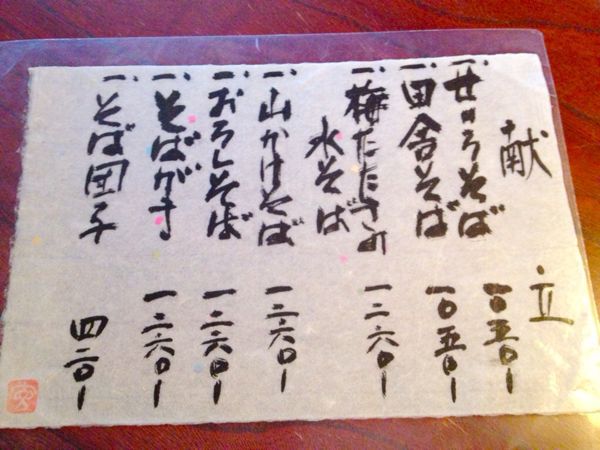 献立
一、せいろそば 一〇五〇ー
一、田舎そば 一〇五〇ー
一、梅たたきの
水そば 一二六〇ー
一、山かけそば 一二六〇ー
一、おろしそば 一二六〇ー
一、そばがき 一二六〇ー
一、そば団子 四二〇ー